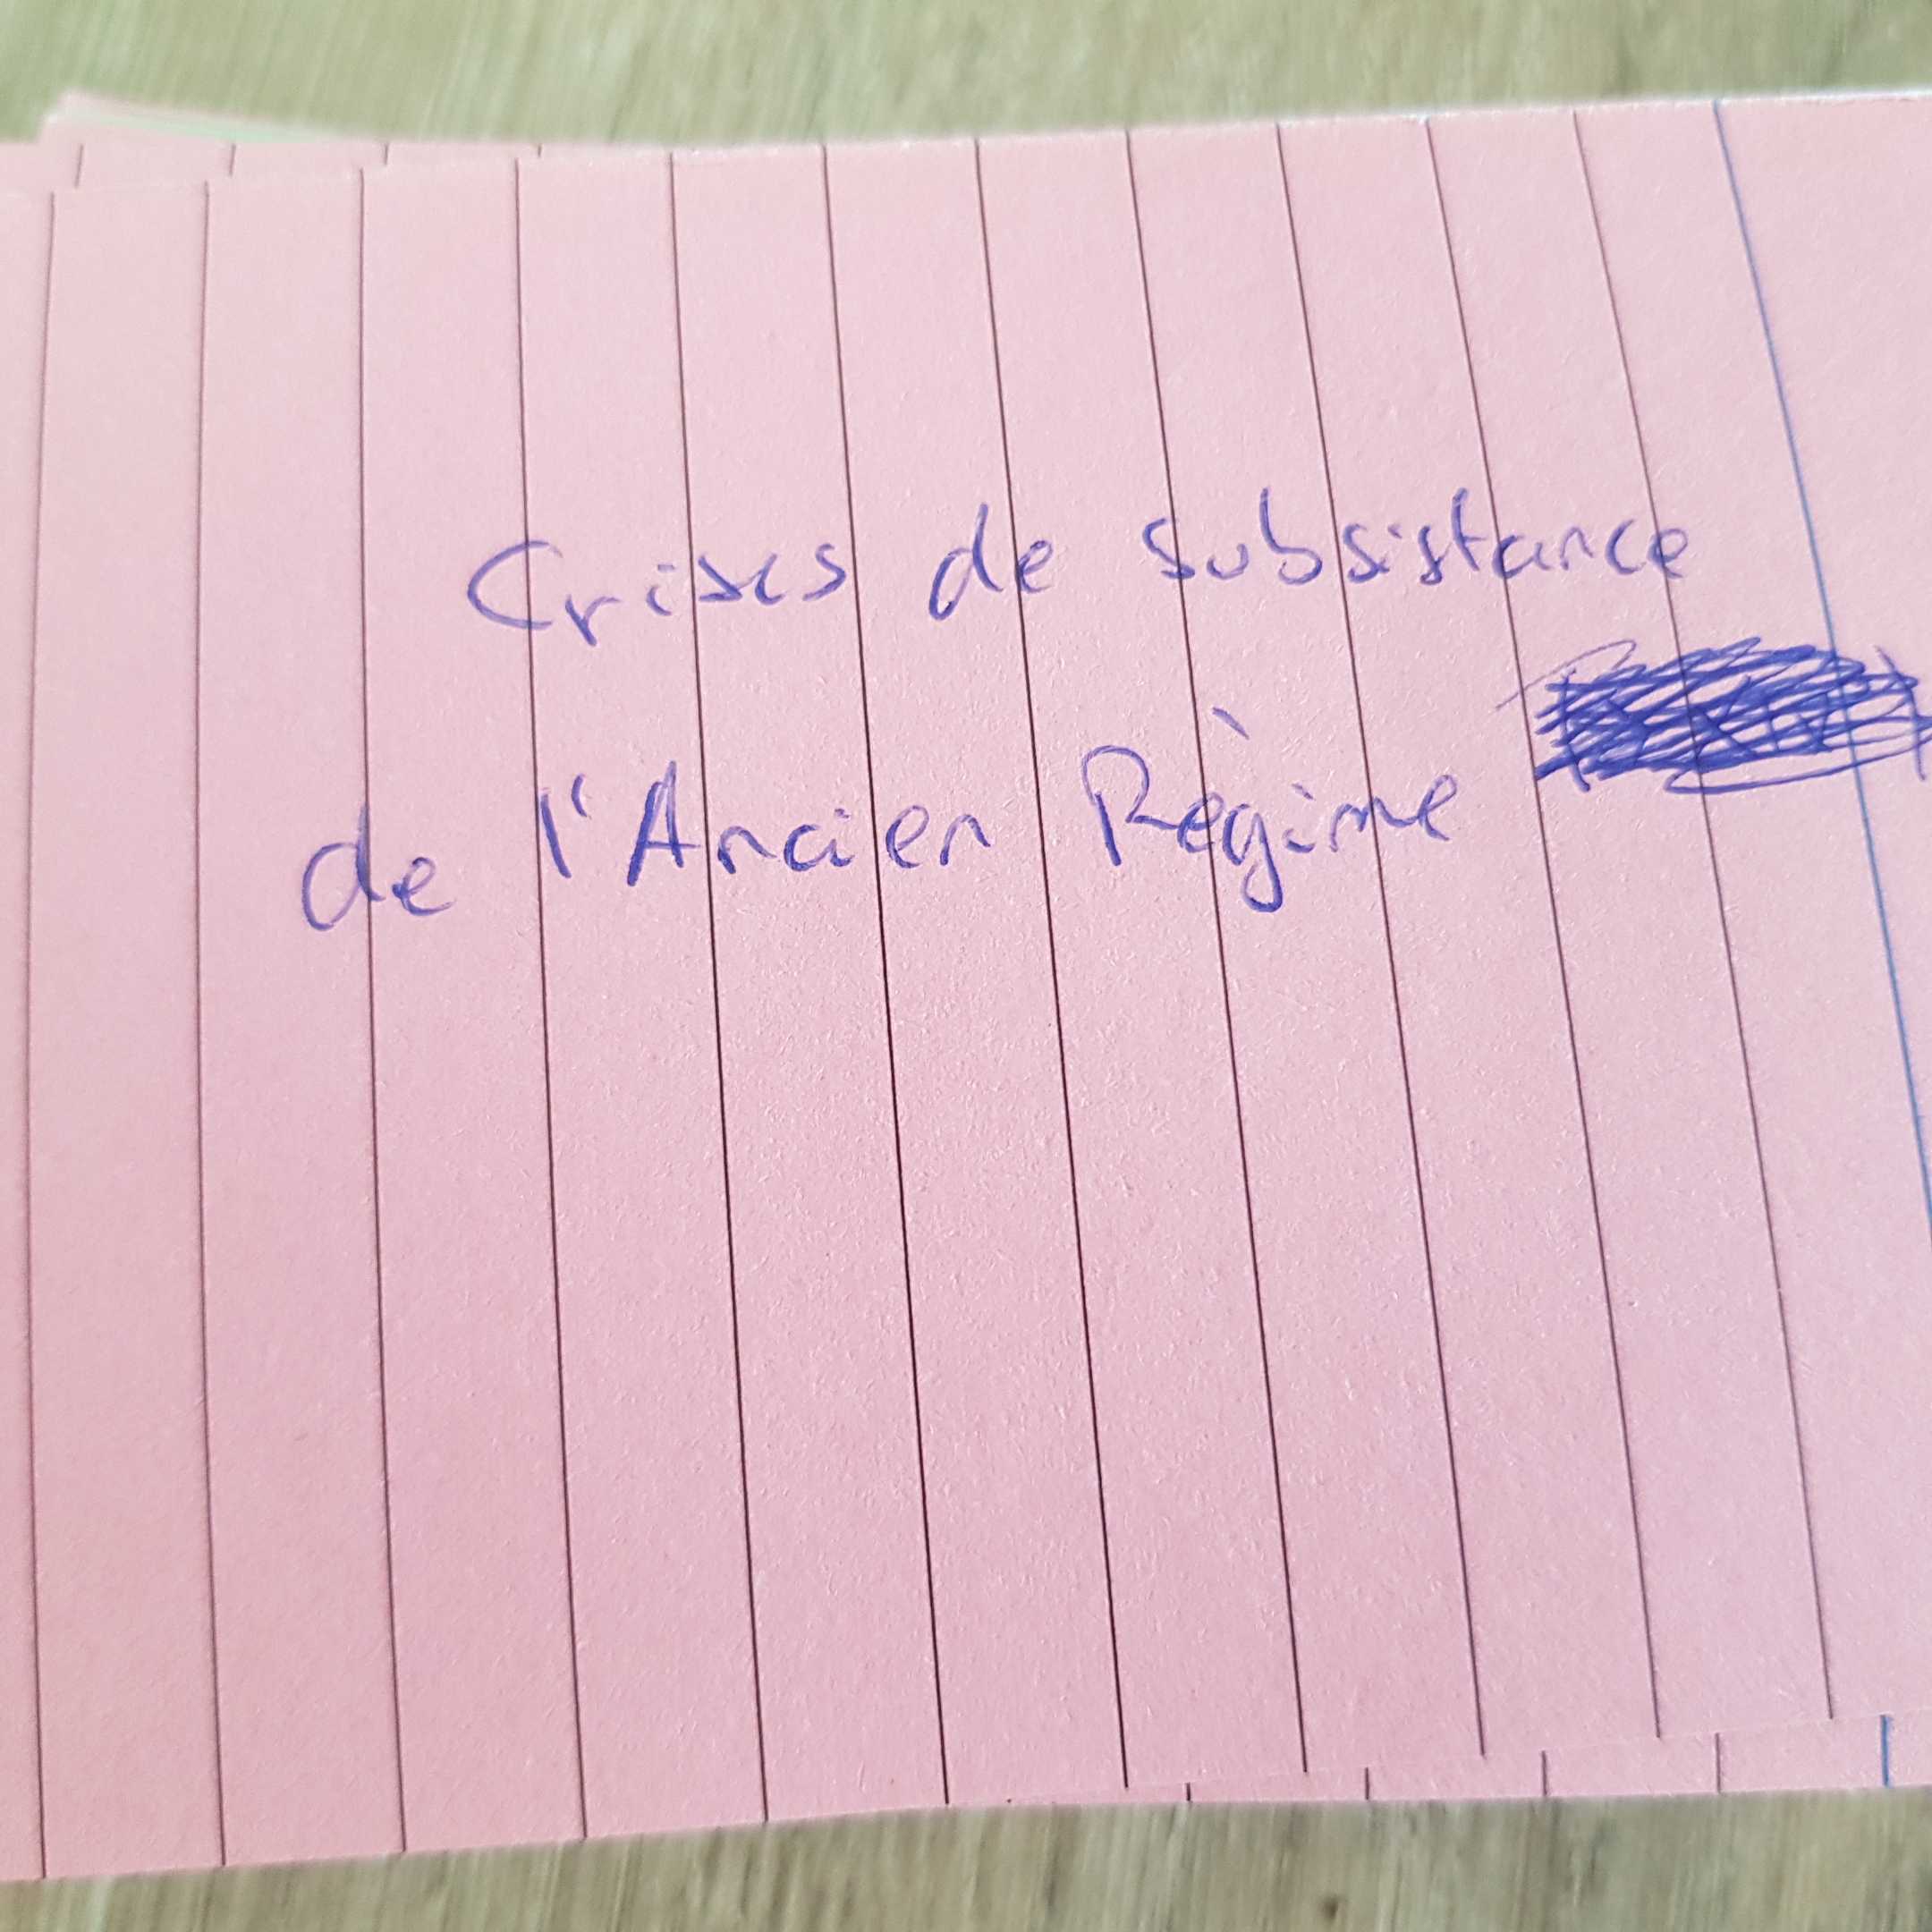 Crises de subsistance
de l'Ancien Règime